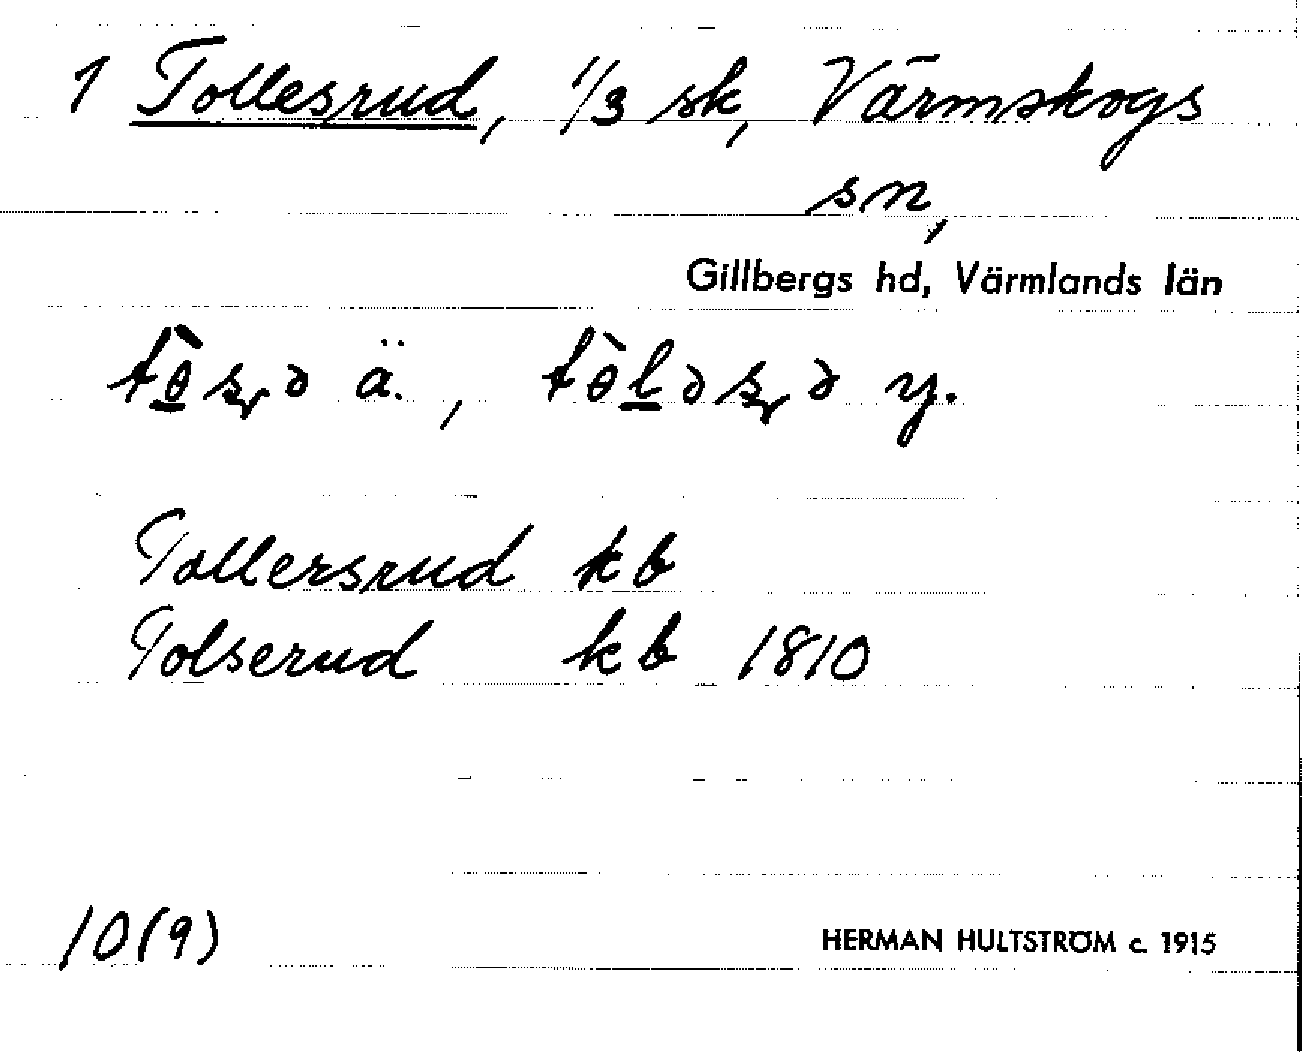 1 Tollesrud, 1/3 sk, Värmskogs
sn,
Gillbergs hd, Värmlands län
ä., y.
Tollersrud kb
Tolserud kb 1810
10(9)
HERMAN HULTSTRÖM c. 1915